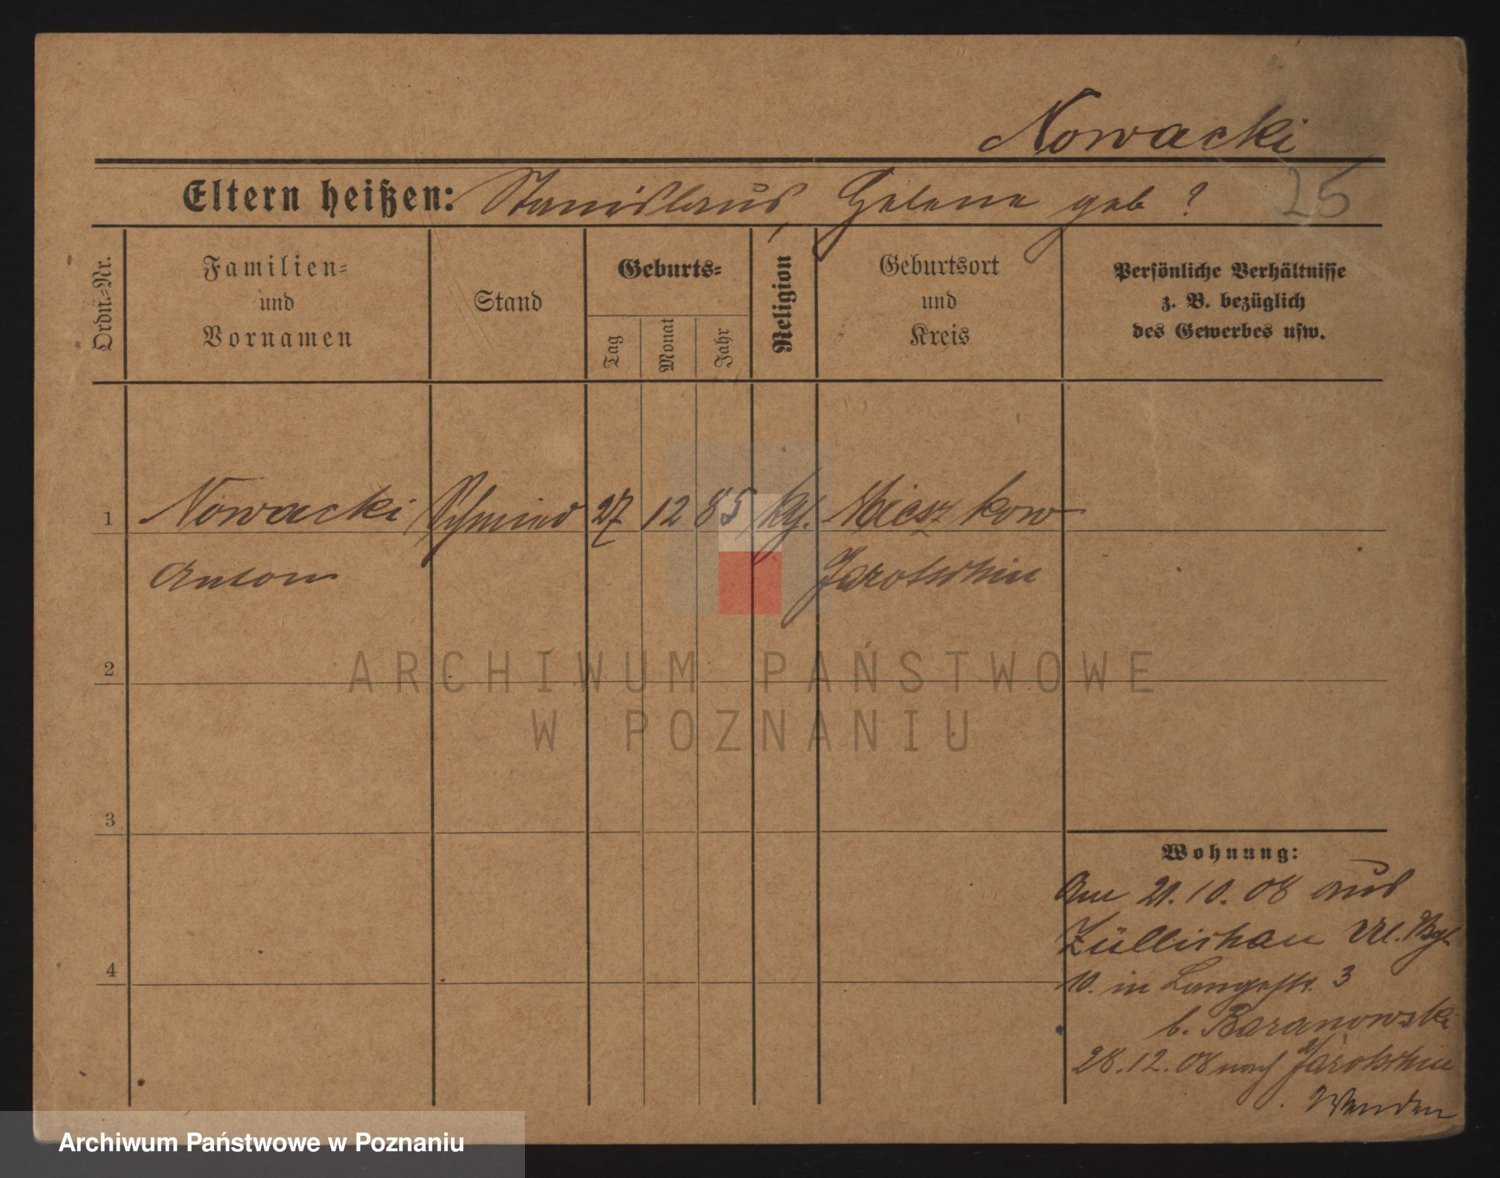 Nowacki
Eltern heißen: Stanislaus, Helene geb ?
25
Ordn.-Nr.
Familien-
und
Vornamen
Stand
Geburts-
Tag
Monat
Jahr
Religion
Geburtsort
und
Kreis
Persönliche Verhältnisse
z. B. bezüglich
des Gewerbes usw.
1 Nowacki Schmied 27 12 85 kth. Mieszkow
Anton Jarotschin
2
3
4
Wohnung:
Am 21.10.08 aus
Züllichau
10. in Langestr. 3
b. Baranowski
28.12.08 nach Jarotschin
ARCHIWUM PAŃSTWOWE
W POZNANIU
Archiwum Państwowe w Poznaniu